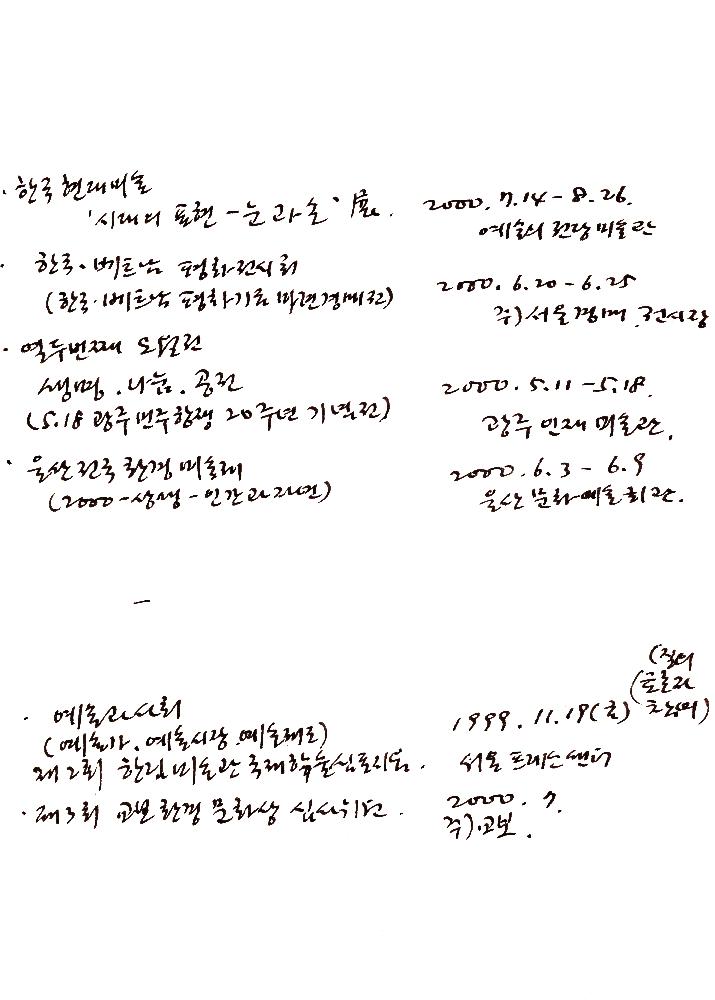 · 한국현대미술
'시대의 표현 - 눈과 손' 展. 2000. 7. 14 - 8. 26.
예술의 전당 미술관
· 한국·베트남 평화전시회
(한국·베트남 평화기금 마련경매전) 2000. 6. 20 - 6. 25
주) 서울경매 전시장
· 열두번째 오월전
생명. 나눔. 공존 2000. 5. 11 - 5. 18.
(5.18 광주민주항쟁 20주년 기념전) 광주 인재 미술관.
· 울산전국환경미술제 2000. 6. 3 - 6. 9
(2000 - 상생 - 인간과 자연) 울산문화예술회관.
—
(질의
· 예술과 사회 1999. 11. 19(금) (토론자
(예술가. 예술시장. 예술제도)
제2회 한림미술관 국제학술심포지움. 서울 프레스센터
· 제3회 교보환경문화상 심사위원. 2000. 7.
주) 교보.